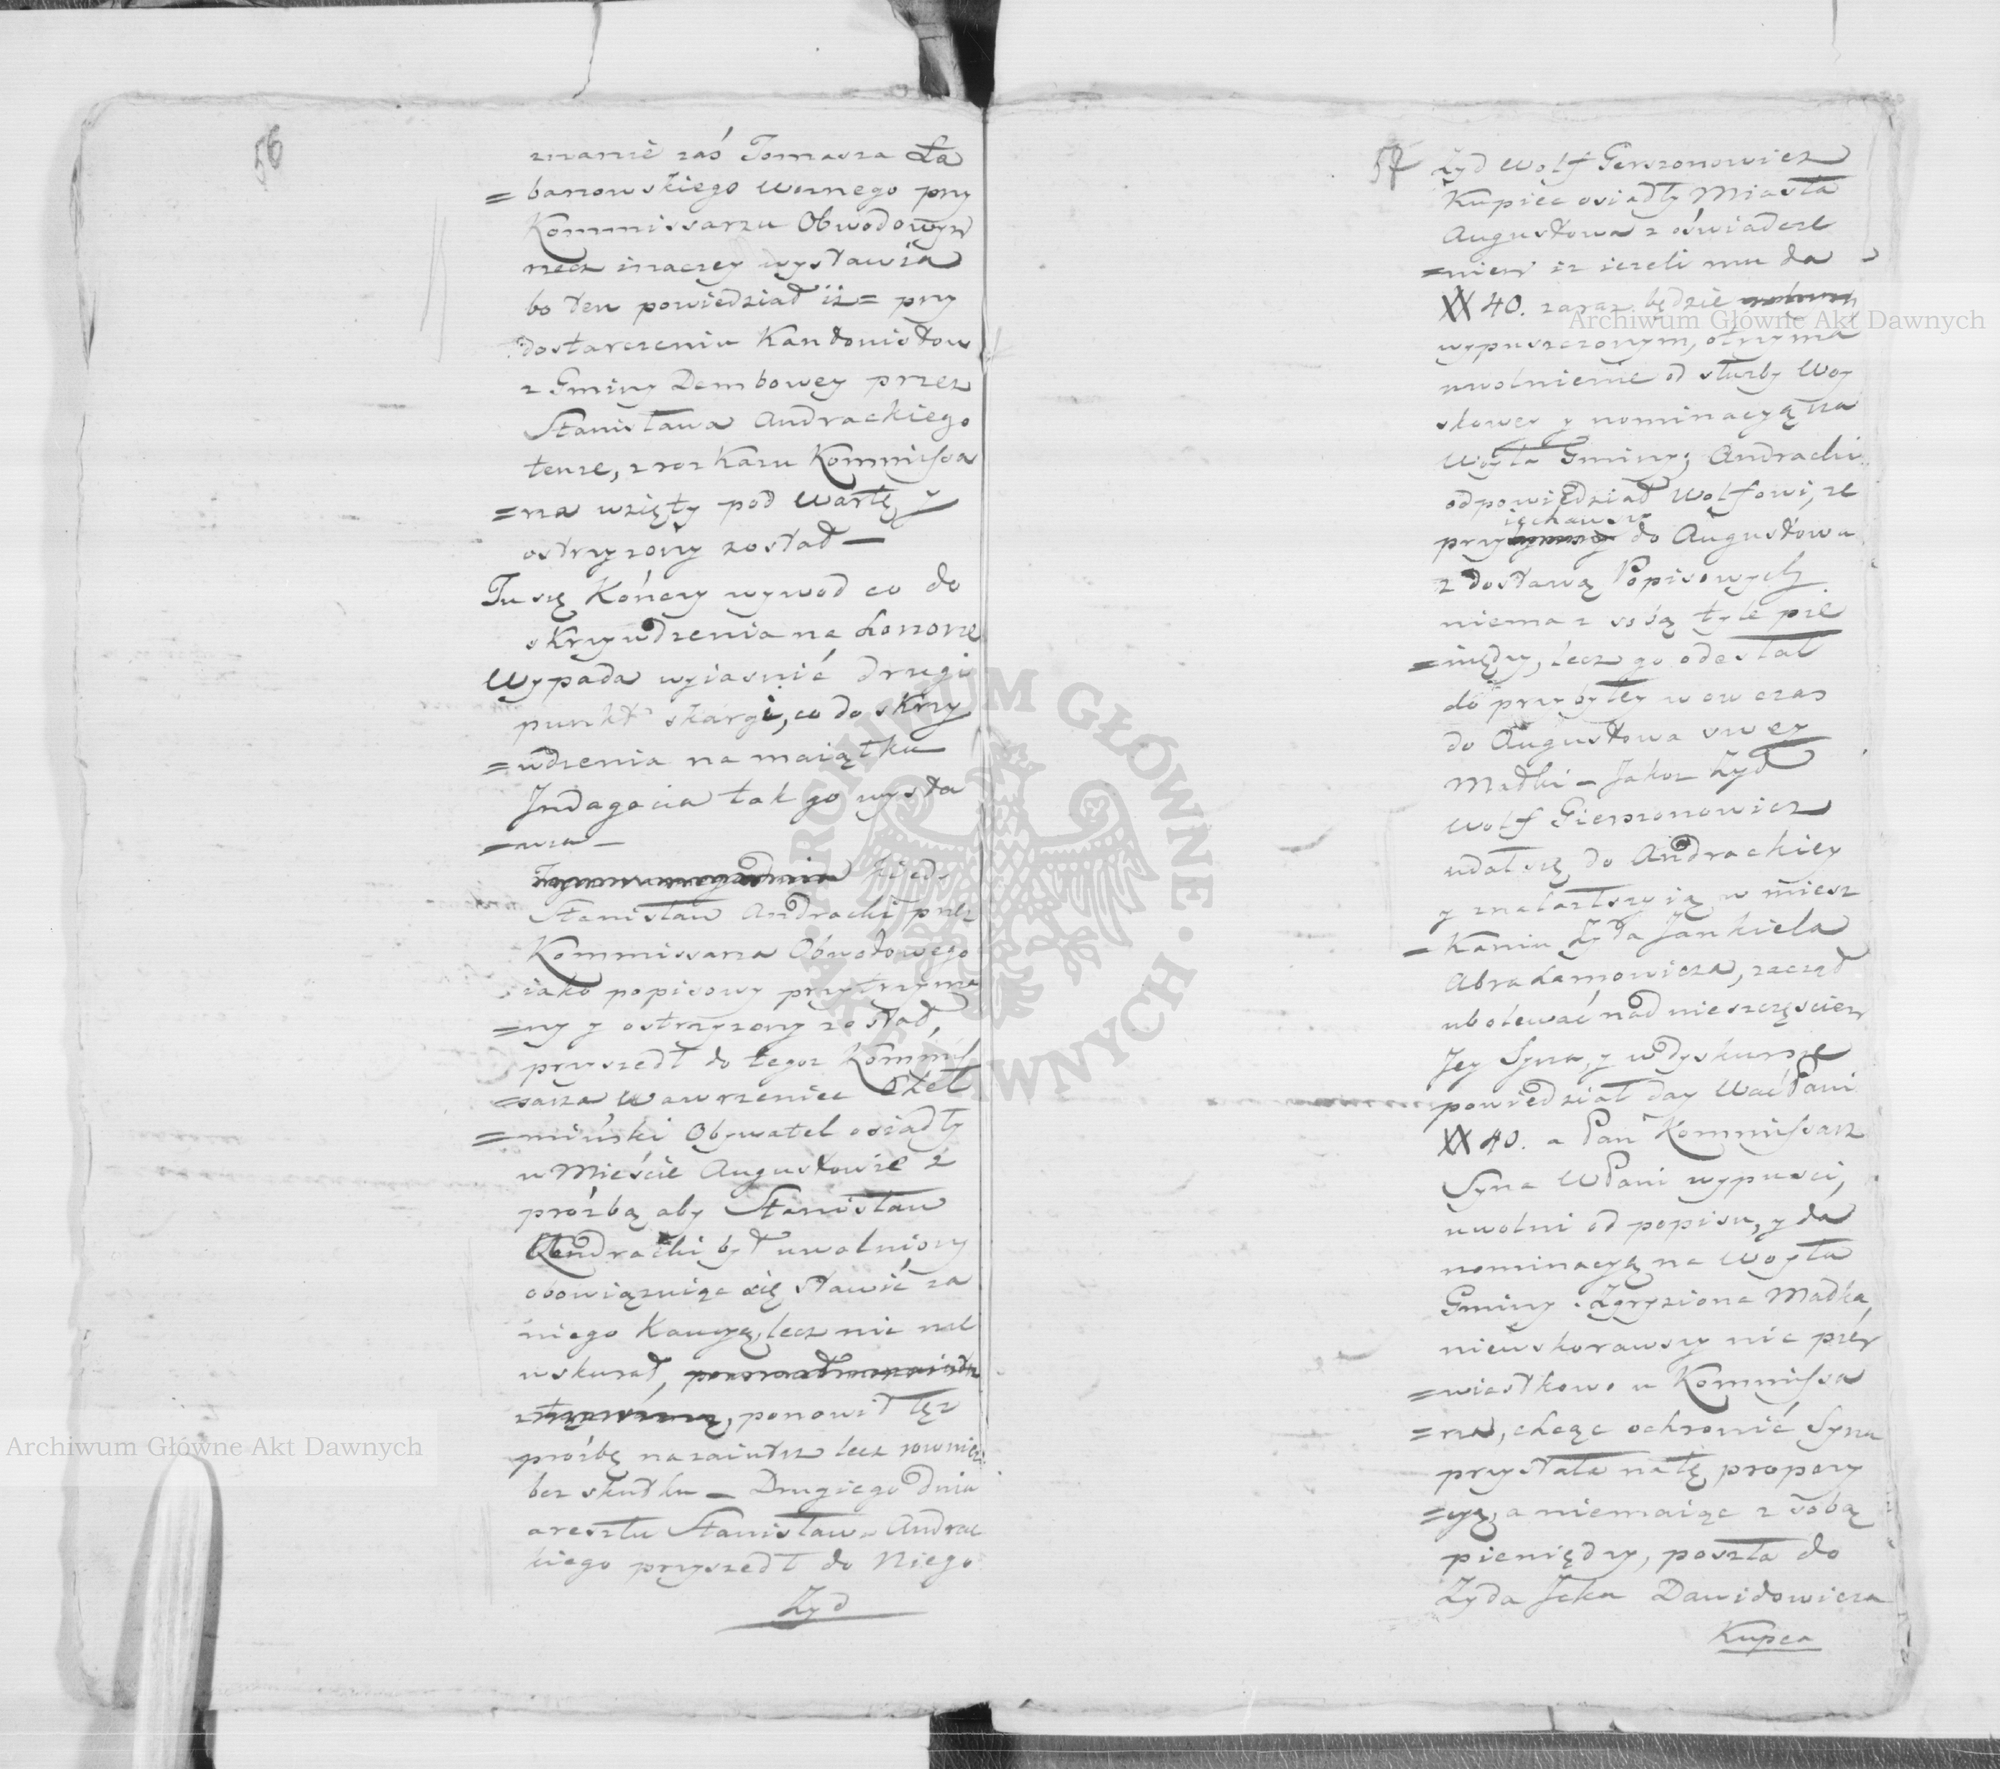 56
znanie zaś Tomasza Ła
=banowskiego Woznego przy
Kommissarzu Obwodowym
rzecz inaczey wystawia
bo ten powiedział iż= przy
dostarczeniu Kantonistow
z Gminy Dembowey przez
Stanisława Andrackiego
tenże, z rozkazu Kommissa
=rza wzięty pod Wartę y
ostrzyżony został —
Tu się Kończy wywod co do
skrzywdzenia na honorze
Wypada wyiasnić drugi
punkt skargi, co do skrzy
=wdzenia na maiątku
Indagacia tak go wysta
=wia —
kiedy
Stanisław Andracki przez
Kommissarza Obwodowego
iako popisowy przytrzyma
=ny y ostrzyzony został,
przyszedł do tegoz Kommis
=sarza Wawrzeniec Cheł
=miński Obywatel osiadły
w Mieście Augustowie z
próźbą aby Stanisław
Andracki był uwolniony
obowiązuiąc się stawić za
niego Kaucyą, lecz nic nie
wskurał,
ponowił tęż
próźbę nazaiutrz lecz rownież
bez skutku — Drugiego dnia
aresztu Stanisława Andrac
kiego przyszedł do Niego
Żyd
57
Żyd Wolf Gerszonowicz
Kupiec osiadły Miasta
Augustowa z oświadcze
=niem iz iezeli mu da
XX 40. zaraz będzie
wypuszczonym, otrzyma
uwolnienie od służby Woy
skowey y nominacyą na
Woyta Gminy; Andracki
odpowiedział Wolfowi, że
iechawszy
przy do Augustowa
z dostawą Popisowych
niema z sobą tyle pie
=niędzy, lecz go odesłał
do przybyłey wowczas
do Augustowa swey
Matki — Jakoz Żyd
Wolf Gierszonowicz
udał się do Andrackiey
y znalazłszy ią w miesz
=kaniu Żyda Jankiela
Abrahamowicza, zaczął
ubolewać nad nieszczęściem
Jey Syna, y w dyskursie
powiedział day Wać Pani
XX 40. a Pan Kommissarz
Syna WPani wypusci,
uwolni od popisu, y da
nominacyą na Woyta
Gminy. Zgryziona Matka,
niewskorawszy nic pier
=wiastkowo u Kommissa
=rza, chcąc ochronić Syna
przystała na tę propozy
=cyą, a niemaiąc z sobą
pieniędzy, poszła do
Żyda Icka Dawidowicza
Kupca
Archiwum Główne Akt Dawnych
Archiwum Główne Akt Dawnych
ARCHIWUM GŁÓWNE · AKT DAWNYCH ·